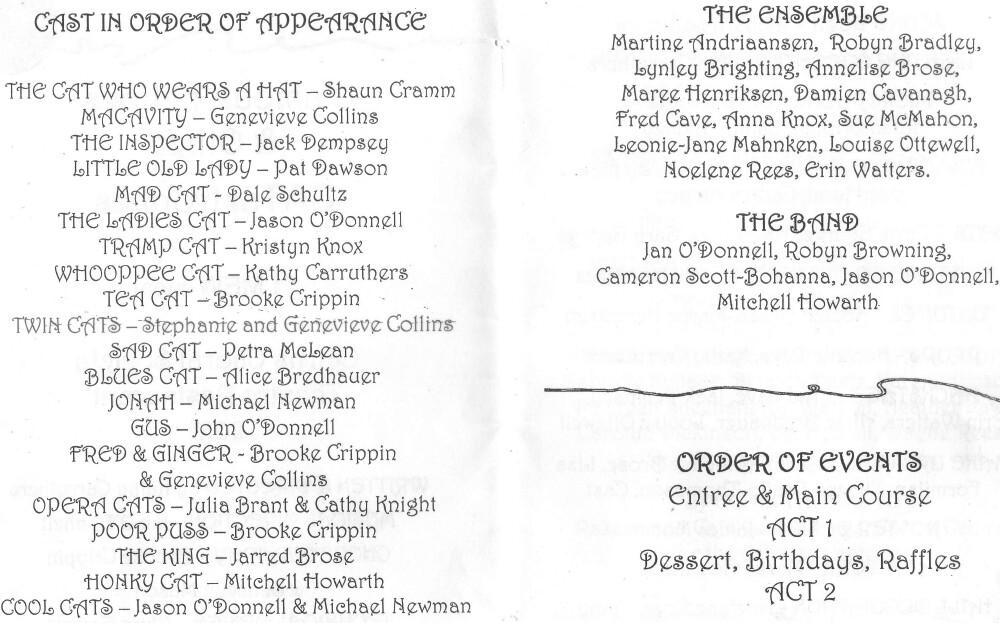 CAST IN ORDER OF APPEARANCE
THE CAT WHO WEARS A HAT – Shaun Cramm
MACAVITY – Genevieve Collins
THE INSPECTOR – Jack Dempsey
LITTLE OLD LADY – Pat Dawson
MAD CAT - Dale Schultz
THE LADIES CAT – Jason O'Donnell
TRAMP CAT – Kristyn Knox
WHOOPPEE CAT – Kathy Carruthers
TEA CAT – Brooke Crippin
TWIN CATS – Stephanie and Genevieve Collins
SAD CAT – Petra McLean
BLUES CAT – Alice Bredhauer
JONAH – Michael Newman
GUS – John O'Donnell
FRED & GINGER - Brooke Crippin
& Genevieve Collins
OPERA CATS – Julia Brant & Cathy Knight
POOR PUSS – Brooke Crippin
THE KING – Jarred Brose
HONKY CAT – Mitchell Howarth
COOL CATS – Jason O'Donnell & Michael Newman
THE ENSEMBLE
Martine Andriaansen, Robyn Bradley,
Lynley Brighting, Annelise Brose,
Maree Henriksen, Damien Cavanagh,
Fred Cave, Anna Knox, Sue McMahon,
Leonie-Jane Mahnken, Louise Ottewell,
Noelene Rees, Erin Watters.
THE BAND
Jan O'Donnell, Robyn Browning,
Cameron Scott-Bohanna, Jason O'Donnell,
Mitchell Howarth
ORDER OF EVENTS
Entree & Main Course
ACT 1
Dessert, Birthdays, Raffles
ACT 2